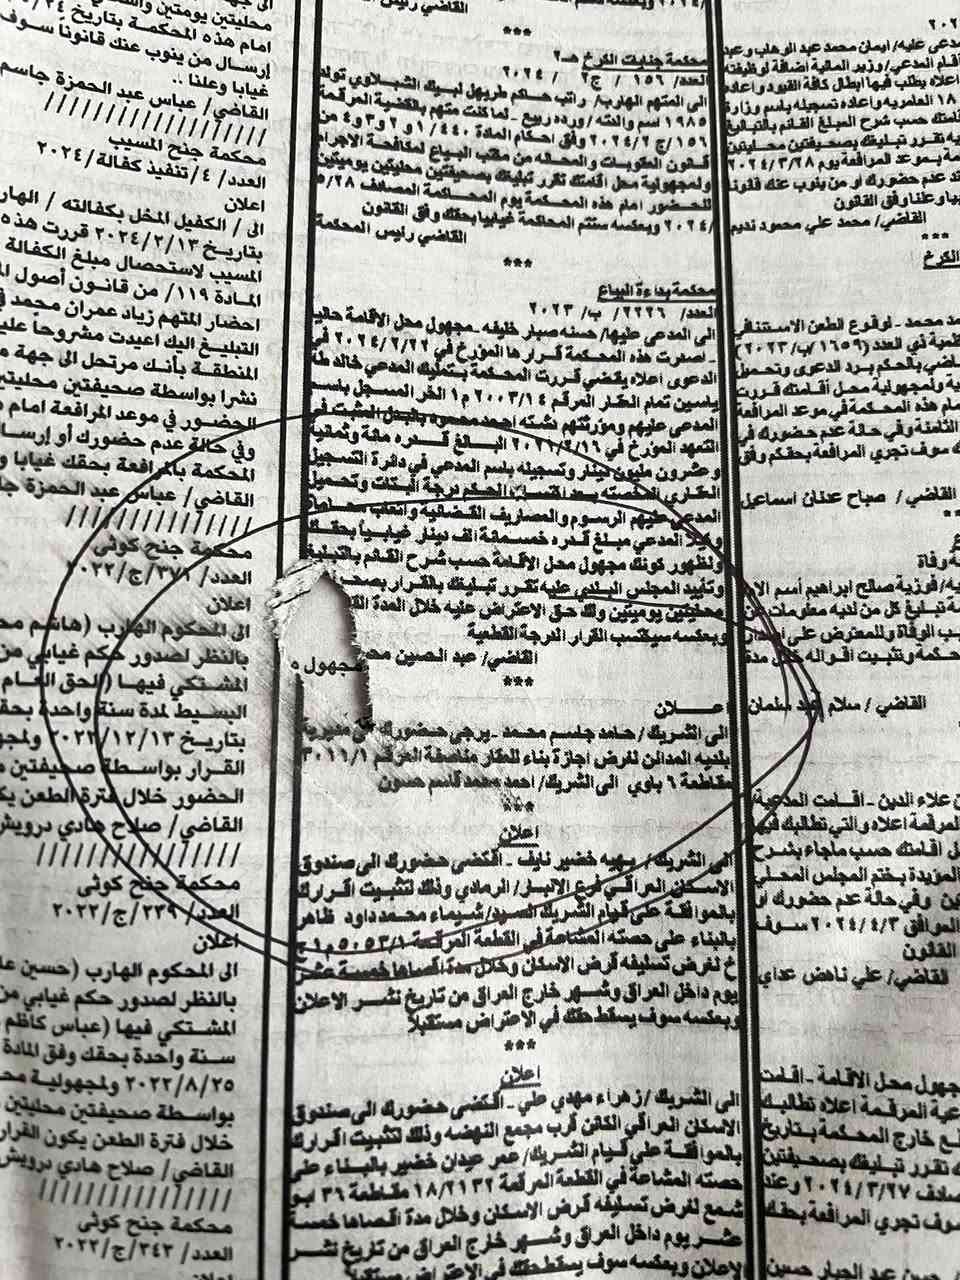 القاضي رئيس
***
محكمة جنايات الكرخ هـ٢
العدد/ ١٥٦ / ج٢ / ٢٠٢٤
الى المتهم الهارب/ راتب هاكم طربهل لبيك الشبلاوي تولد
١٩٨٥ اسم والدته / ورده ربيع ـ لما كنت متهم بالقضية المرقمة
١٥٦/ج٢٠٢٤/٢ وفق احكام المادة ١/٤٤٠ و٢ و٣ و٤ من
قانون العقوبات والمحاله من مكتب البياع لمكافحة الاجرام
ولمجهولية محل اقامتك تقرر تبليغك بصحيفتين محليتين يوميتين
للحضور امام هذه المحكمة يوم المحاكمة المصادف ٥/٢٨
/٢٠٢٤ وبعكسه ستتم المحاكمة غيابيا بحقك وفق القانون
القاضي رئيس المحكمة
***
محكمة بداءة البياع
العدد/ ٢٢٢٦/ ب/ ٢٠٢٣
الى المدعى عليها/ حسنه صبار خليفه ـ مجهول محل الاقامة حاليا
ـ اصدرت هذه المحكمة قرارها المؤرخ في ٢٠٢٤/٢/٢٢ في
الدعوى اعلاه يقضي قررت المحكمة بتمليك المدعي خالد طه
ياسين تمام العقار المرقم ٢٠٠٣/١٤ م١ الخر المسجل باسم
المدعى عليهم ومورثتهم نشته احمد محمود بالبدل المثبت في
التعهد المؤرخ في ٢٠٢١/٢/١٦ البالغ قدره مائة وثمانية
وعشرون مليون دينار وتسجيله باسم المدعي في دائرة التسجيل
العقاري المختصه بعد اكتساب الحكم درجة البتات وتحميل
المدعى عليهم الرسوم والمصاريف القضائية واتعاب محاماة
وكيل المدعي مبلغ قدره خمسمائة الف دينار غيابياً بحقك
ولظهور كونك مجهول محل الاقامة حسب شرح القائم بالتبليغ
وتأييد المجلس البلدي عليه تقرر تبليغك بالقرار
محليتين يوميتين ولك حق الاعتراض عليه خلال المدة
وبعكسه سيكتسب القرار الدرجة القطعية
القاضي/ عبد الحسين
مجهول م
***
اعـــلان
الى الشريك / حامد جاسم محمد ـ يرجى حضورك الى مديرية
بلديه المدائن لغرض اجازة بناء للعقار مناصفة المرقم ٣٠١١/١
مقاطعة ٦ باوي الى الشريك/ احمد محمد قاسم حسون
***
اعلان
الى الشريك / بهيه خضير نايف ـ اقتضى حضورك الى صندوق
الاسكان العراقي فرع الانبار/ الرمادي وذلك لتثبيت اقرارك
بالموافقة على قيام الشريك السيد/ شيماء محمد داود ظاهر
بالبناء على حصته المشاعة في القطعة المرقمة ٥٠٥٣/١ م١ج
خ لغرض تسليفه قرض الاسكان وخلال مدة اقصاها خمسة عشر
يوم داخل العراق وشهر خارج العراق من تاريخ نشر الاعلان
وبعكسه سوف يسقط حقك في الاعتراض مستقبلاً
***
اعلان
الى الشريك /زهراء مهدي علي ـ اقتضى حضورك الى صندوق
الاسكان العراقي الكائن قرب مجمع النهضه وذلك لتثبيت اقرارك
بالموافقة على قيام الشريك/ عمر عيدان خضير بالبناء على
حصته المشاعة في القطعة المرقمة ١٨/٢١٣٢ مقاطعة ٣٦ ابو
شمع لغرض تسليفه قرض الاسكان وخلال مدة اقصاها خمسة
عشر يوم داخل العراق وشهر خارج العراق من تاريخ نشر
الاعلان وبعكسه سوف يسقط حقك في الاعتراض مستقبلاً
مدعى عليه/ ايمان محمد عبد الوهاب وعبد
أقام المدعي/ وزير المالية اضافة لوظيفته
اعلاه يطلب فيها ابطال كافة القيود واعاده
١٨ العامريه واعاده تسجيله باسم وزارة
اقامتك حسب شرح المبلغ القائم بالتبليغ
تقرر تبليغك بصحيفتين محليتين
بموعد المرافعة يوم ٢٠٢٤/٣/٢٨
وعند عدم حضورك او من ينوب عنك قانونا
وعلنا وفق القانون
القاضي/ محمد علي محمود نديم
***
الكرخ
محمد ـ لوقوع الطعن الاستئنافي
ذي العدد (١٦٥٩/ب/٢٠٢٣)
بالحكم برد الدعوى وتحميل
ولمجهولية محل اقامتك قررت
هذه المحكمة في موعد المرافعة
الثامنة وفي حالة عدم حضورك في
سوف تجري المرافعة بحقكم وفق
القاضي / صباح عدنان اسماعيل
وفاة
فوزية صالح ابراهيم أسم
تبليغ كل من لديه معلومات
الوفاة وللمعترض على
وتثبيت اقواله خلال مدة
القاضي / سلام عبد سلمان
علاء الدين ـ اقامت المدعية/
المرقمة اعلاه والتي تطالبك فيها
اقامتك حسب ماجاء بشرح
المؤيدة بختم المجلس المحلي
وفي حالة عدم حضورك أو
الموافق ٢٠٢٤/٤/٣ سوف
القانون
القاضي/ علي ناهض عداي
مجهول محل الاقامة ـ اقامت
المرقمة اعلاه تطالبك
خارج المحكمة بتاريخ
تقرر تبليغك بصحيفتين
٢٠٢٤/٣/٢٧ وعند
سوف تجري المرافعة بحقك
عبد الجبار حسين
محليتين يوميتين
امام هذه المحكمة بتاريخ
إرسال من ينوب عنك قانوناً سوف
غيابا وعلنا ..
القاضي/ عباس عبد الحمزة جاسم
//////////////////
محكمة جنح المسيب
العدد/ ٤/تنفيذ كفالة/٢٠٢٤
اعلان
الى / الكفيل المخل بكفالته / الهار
بتاريخ ٢٠٢٤/٢/١٣ قررت هذه
المسيب لاستحصال مبلغ الكفالة
المادة /١١٩ من قانون أصول
احضار المتهم زياد عمران محمد
التبليغ اليك اعيدت مشروحاً عليه
المنطقة بأنك مرتحل الى جهة
نشرا بواسطة صحيفتين محليتين
الحضور في موعد المرافعة امام
وفي حالة عدم حضورك أو إرسال
المحكمة بالمرافعة بحقك غيابا و
القاضي/ عباس عبد الحمزة
//////////////////
محكمة جنح كوثى
العدد/ ٣٧١/ج/٢٠٢٢
اعلان
الى المحكوم الهارب (هاشم
بالنظر لصدور حكم غيابي من
المشتكي فيها (الحق العام
البسيط لمدة سنة واحدة بحقك
بتاريخ ٢٠٢٢/١٢/١٣
القرار بواسطة صحيفتين
الحضور خلال فترة الطعن
القاضي/ صلاح هادي درويش
//////////////////
محكمة جنح كوثى
العدد/ ٢٣٩/ج/٢٠٢٢
اعلان
الى المحكوم الهارب (حسين
بالنظر لصدور حكم غيابي من
المشتكي فيها (عباس كاظم
سنة واحدة بحقك وفق المادة
٢٠٢٢/٨/٢٥ ولمجهولية
بواسطة صحيفتين محليتين
خلال فترة الطعن يكون القرار
القاضي/ صلاح هادي درويش
//////////////////
محكمة جنح كوثى
العدد/ ٣٤٣/ج/٢٠٢٢